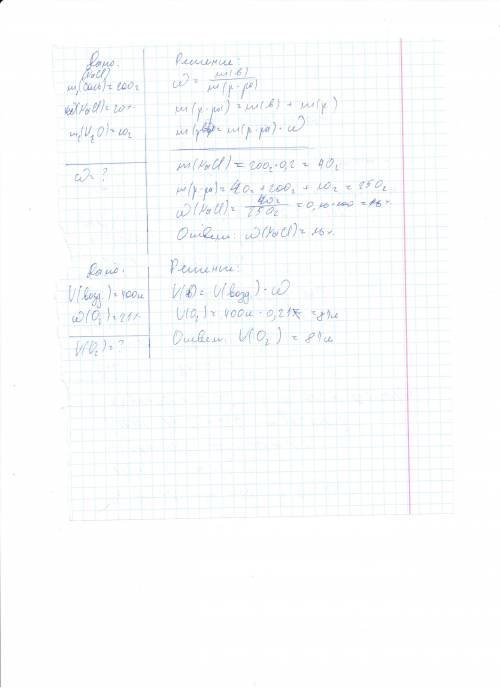 Дано:
(NaCl)
m₁(соль)=200г
ω(NaCl)=20%
m₂(H₂O)=10г
ω=?
Решение:
ω = m(в) / m(р-ра)
m(р-ра) = m(в) + m(р)
= m(р-ра) · ω
m(NaCl) = 200г · 0,2 = 40г
m(р-ра) = 40г + 200г + 10г = 250г
ω(NaCl) = 40г / 250г = 0,16·100 = 16%
Ответ: ω(NaCl) = 16%
Дано:
V(возд.)=400л
ω(O₂)=21%
V(O₂)=?
Решение:
= V(возд.) · ω
V(O₂) = 400л · 0,21 = 84л
Ответ: V(O₂) = 84л